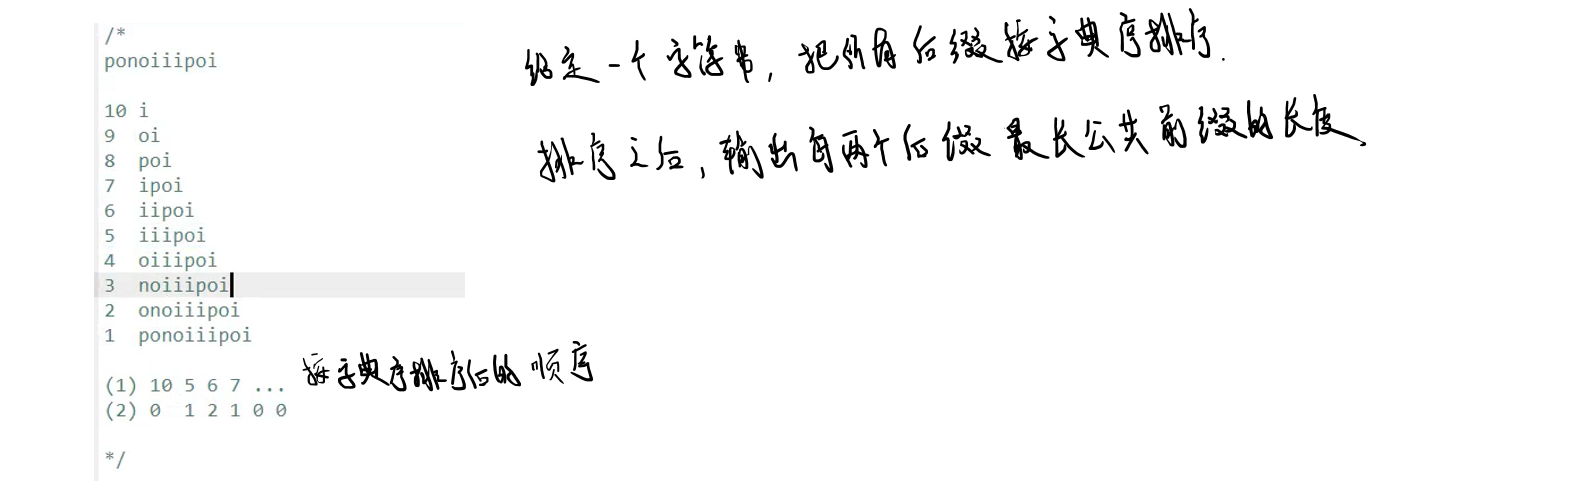 /*
ponoiiipoi
给定一个字符串, 把所有后缀按字典序排序.
10 i
9 oi
8 poi
排序之后, 输出每两个后缀最长公共前缀的长度
7 ipoi
6 iipoi
5 iiipoi
4 oiiipoi
3 noiiipoi
2 onoiiipoi
1 ponoiiipoi
(1) 10 5 6 7 ... 按字典序排序后的顺序
(2) 0 1 2 1 0 0
*/